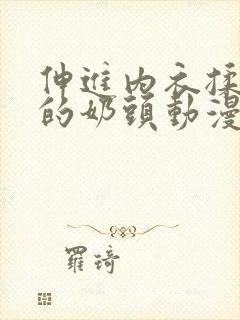 伸進內衣揉
的奶頭動漫
羅琦